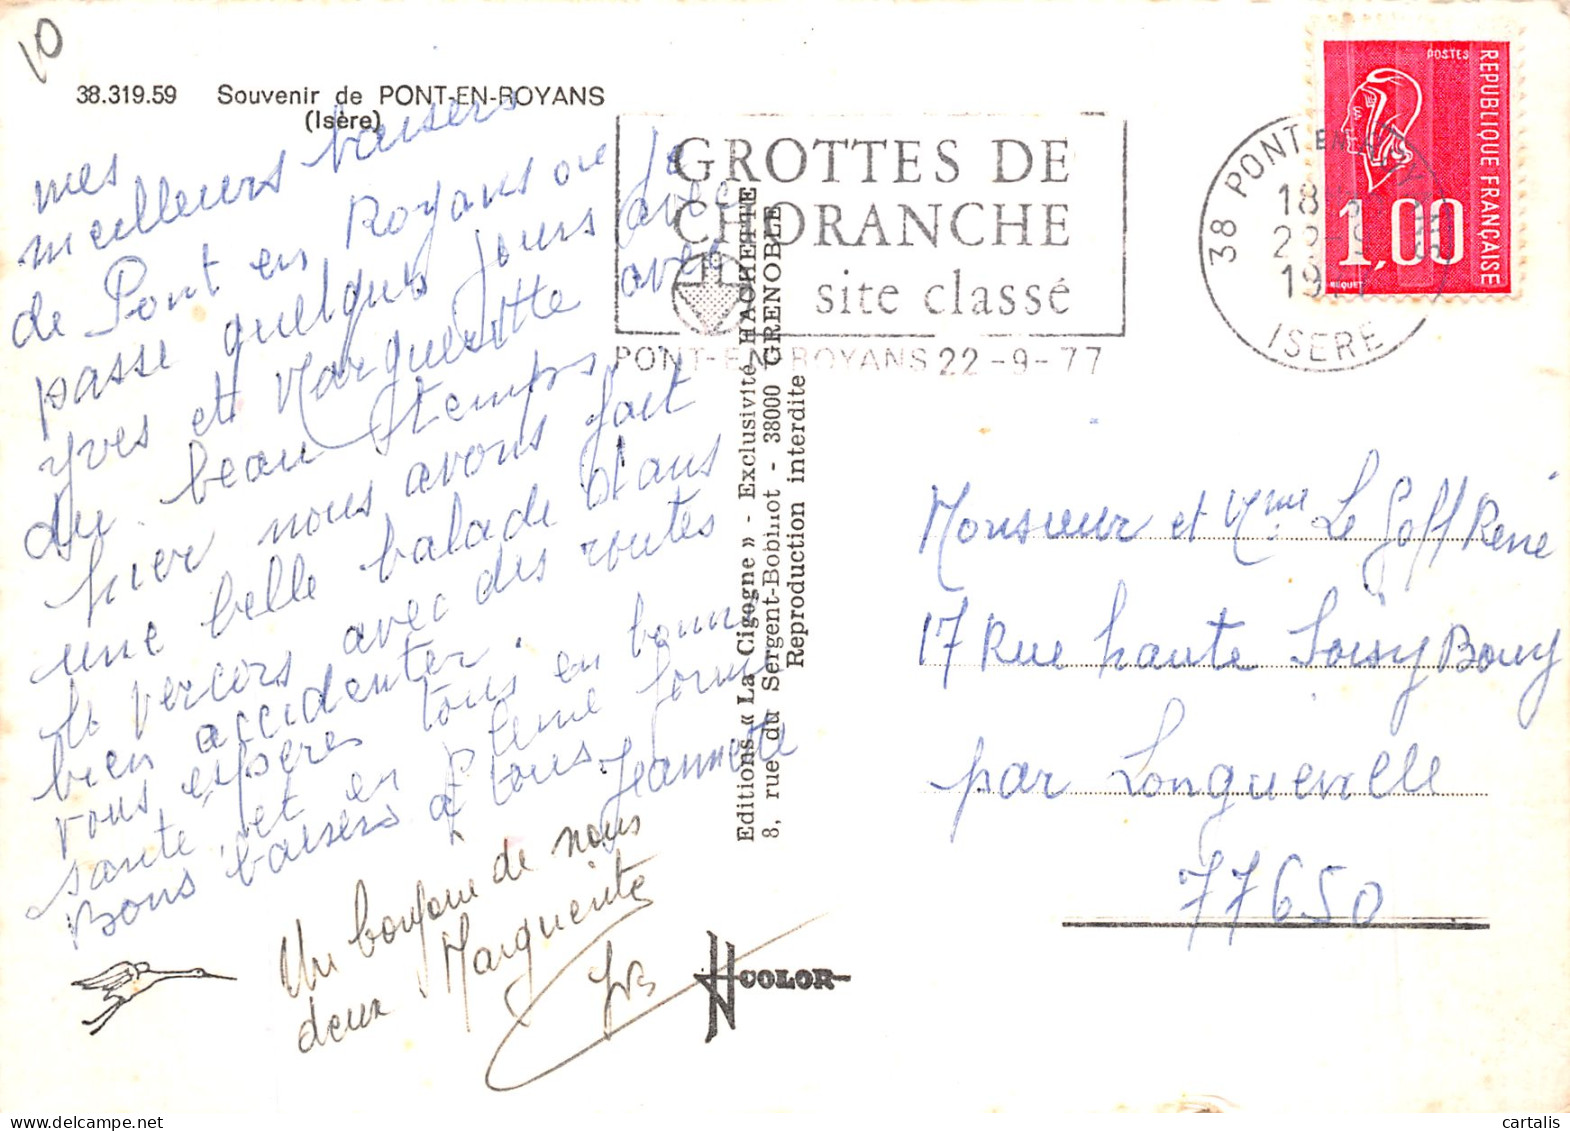 10
38.319.59 Souvenir de PONT-EN-ROYANS
(Isère)
mes
meilleurs baisers
de Pont en Royans ou je
passe quelques jours avec
Yves et Marguerite avec
du beau temps
hier nous avons fait
une belle balade dans
le vercors avec des routes
bien accidenter.
vous espères tous en bonne
santé et en pleine forme
Bons baisers a tous. Jeannette
Un bonjour de nous
deux Marguerite
Editions « La Cigogne » - Exclusivité HACHETTE
8, rue du Sergent-Bobillot - 38000 GRENOBLE
Reproduction interdite
COLOR
GROTTES DE
CHORANCHE
site classé
PONT-EN-ROYANS 22-9-77
38 PONT EN ROYANS
18
22-9
1977
ISERE
POSTES
REPUBLIQUE FRANÇAISE
1,00
BEQUET
Monsieur et Mme Le Goff René
17 Rue haute Soisy Bouy
par Longueville
77650
cartalis